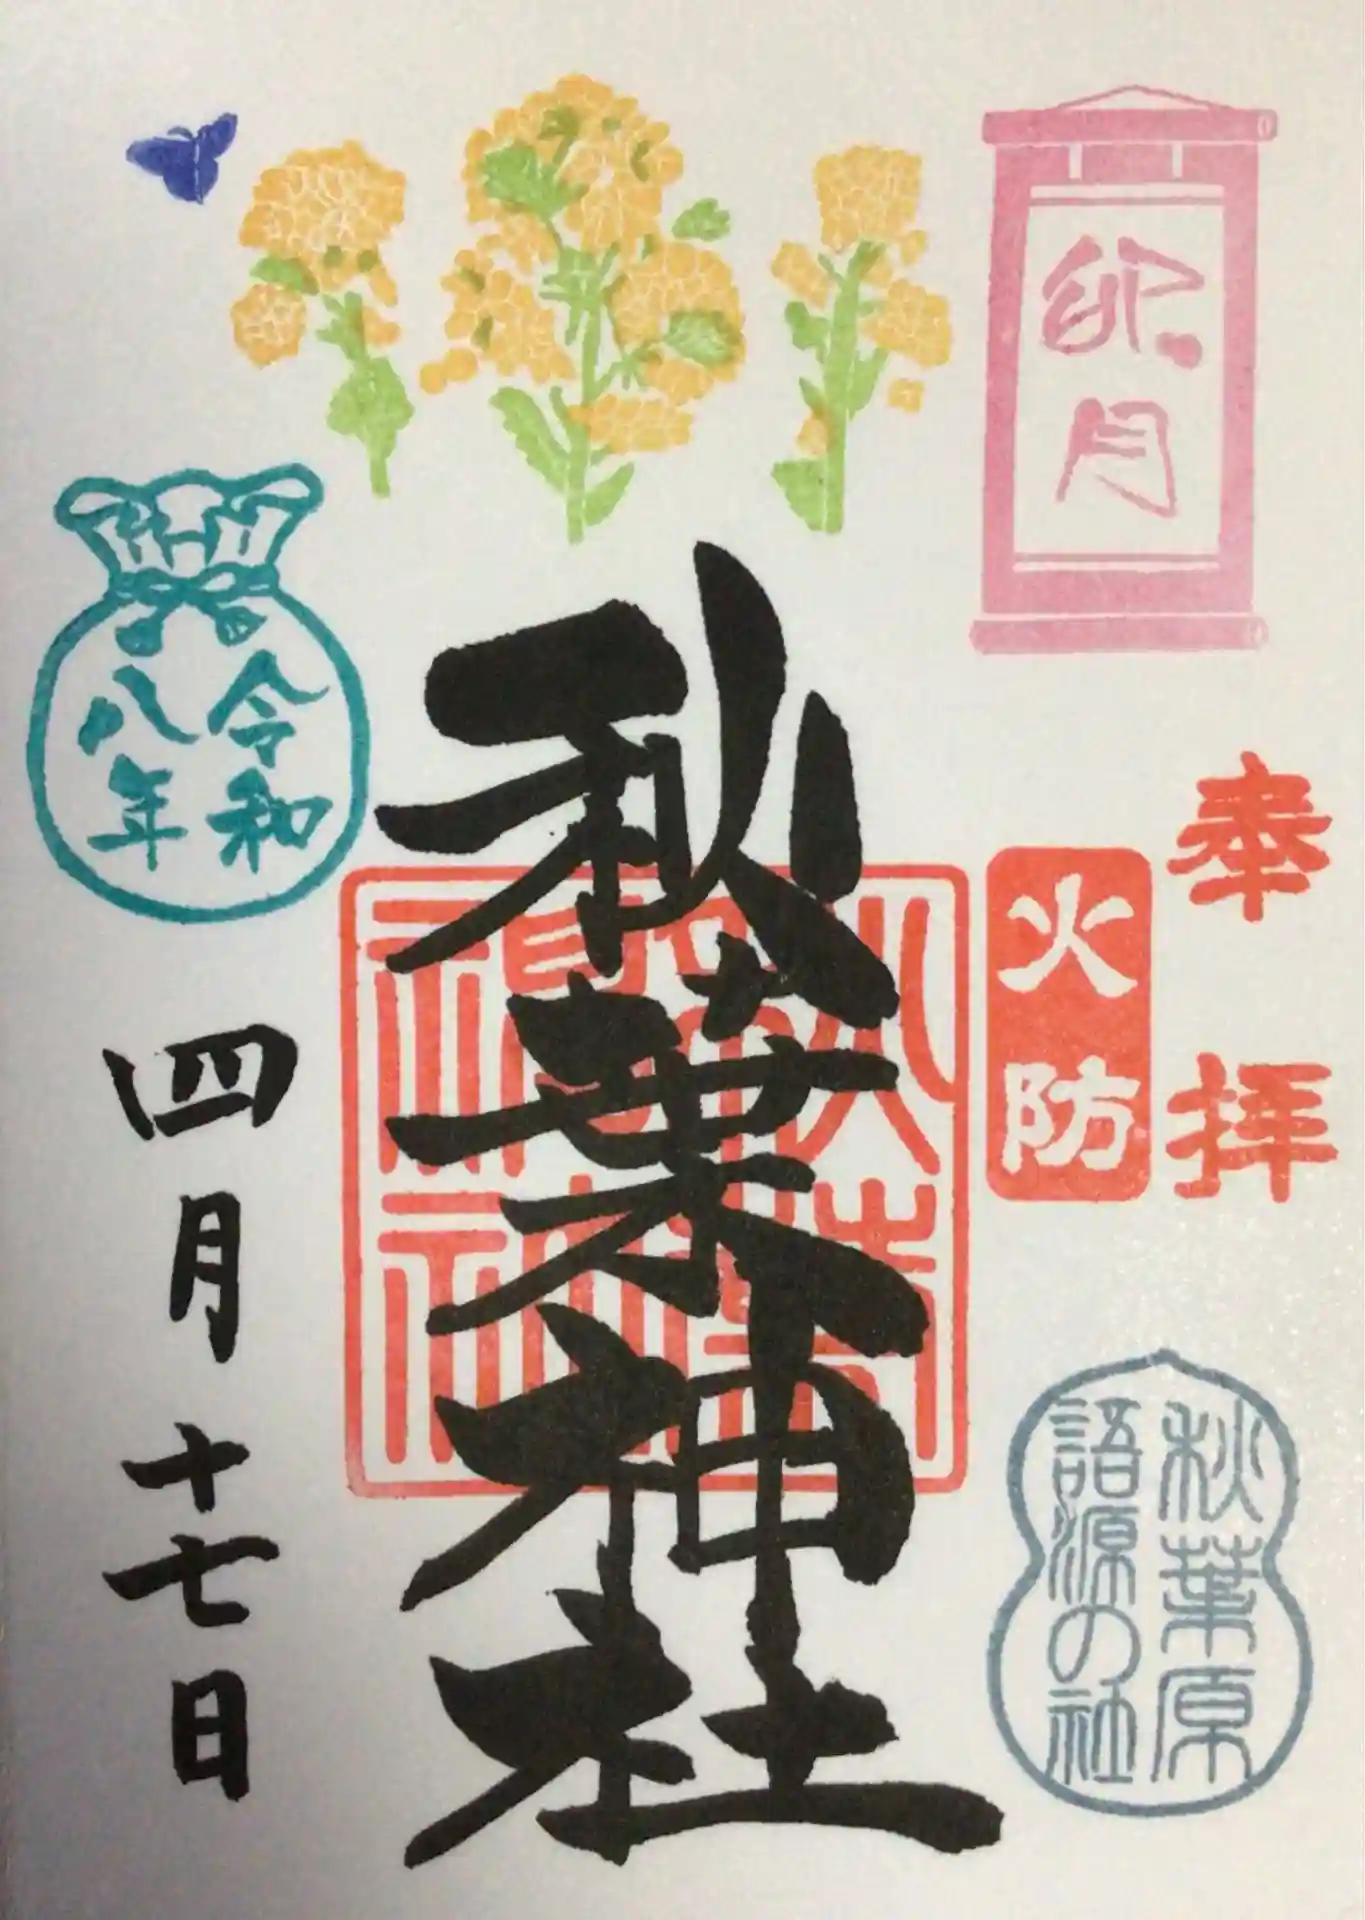 卯月
奉拝
火防
秋葉原
語源の社
秋葉神社
令和
八年
四月十七日